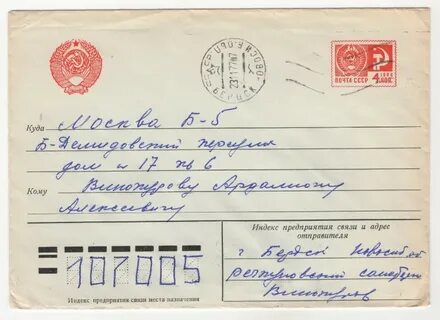 ПОЧТА СССР
4 КОП
23 11 77
БЕРДСК
Куда Москва Б-5
Б-Демидовский переулок
дом № 17 кв 6
Кому Винокурову Ардалиону
Алексеевичу
Индекс предприятия связи и адрес
отправителя
г Бердск Новосиб. об
Винокуров
107005
Индекс предприятия связи места назначения